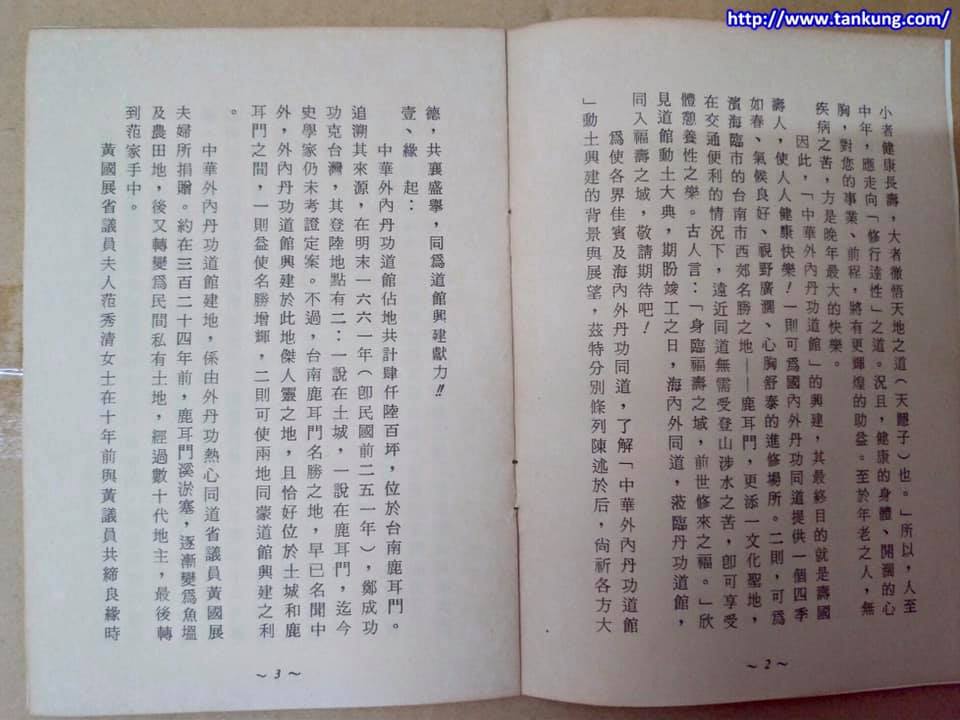 http://www.tankung.com/
小者健康長壽，大者徹悟天地之道（天隱子）也。」所以，人至
中年，應走向「修行達性」之道。況且，健康的身體、開濶的心
胸，對您的事業、前程，將有更輝煌的助益。至於年老之人，無
疾病之苦，方是晚年最大的快樂。
因此，「中華外內丹功道館」的興建，其最終目的就是壽國
壽人，使人人健康快樂！一則可爲國內外丹功同道提供一個四季
如春、氣候良好、視野廣濶、心胸舒泰的進修場所。二則，可爲
濱海臨市的台南市西郊名勝之地——鹿耳門，更添一文化聖地，
在交通便利的情況下，遠近同道無需受登山涉水之苦，卽可享受
體憩養性之樂。古人言：「身臨福壽之域，前世修來之福。」欣
見道館動土大典，期盼竣工之日，海內外同道，蒞臨丹功道館，
同入福壽之域，敬請期待吧！
爲使各界佳賓及海內外丹功同道，了解「中華外內丹功道館
」動土興建的背景與展望，茲特分別條列陳述於后，尙祈各方大
～2～
德，共襄盛擧，同爲道館興建獻力!!
壹、緣　起：
中華外內丹功道館佔地共計肆仟陸百坪，位於台南鹿耳門。
追溯其來源，在明末一六六一年（卽民國前二五一年），鄭成功
功克台灣，其登陸地點有二：一說在土城，一說在鹿耳門，迄今
史學家仍未考證定案。不過，台南鹿耳門名勝之地，早已名聞中
外，外內丹功道館興建於此地傑人靈之地，且恰好位於土城和鹿
耳門之間，一則益使名勝增輝，二則可使兩地同蒙道館興建之利
。
中華外內丹功道館建地，係由外丹功熱心同道省議員黃國展
夫婦所捐贈。約在三百二十四年前，鹿耳門溪淤塞，逐漸變爲魚塭
及農田地，後又轉變爲民間私有土地，經過數十代地主，最後轉
到范家手中。
黃國展省議員夫人范秀清女士在十年前與黃議員共締良緣時
～3～